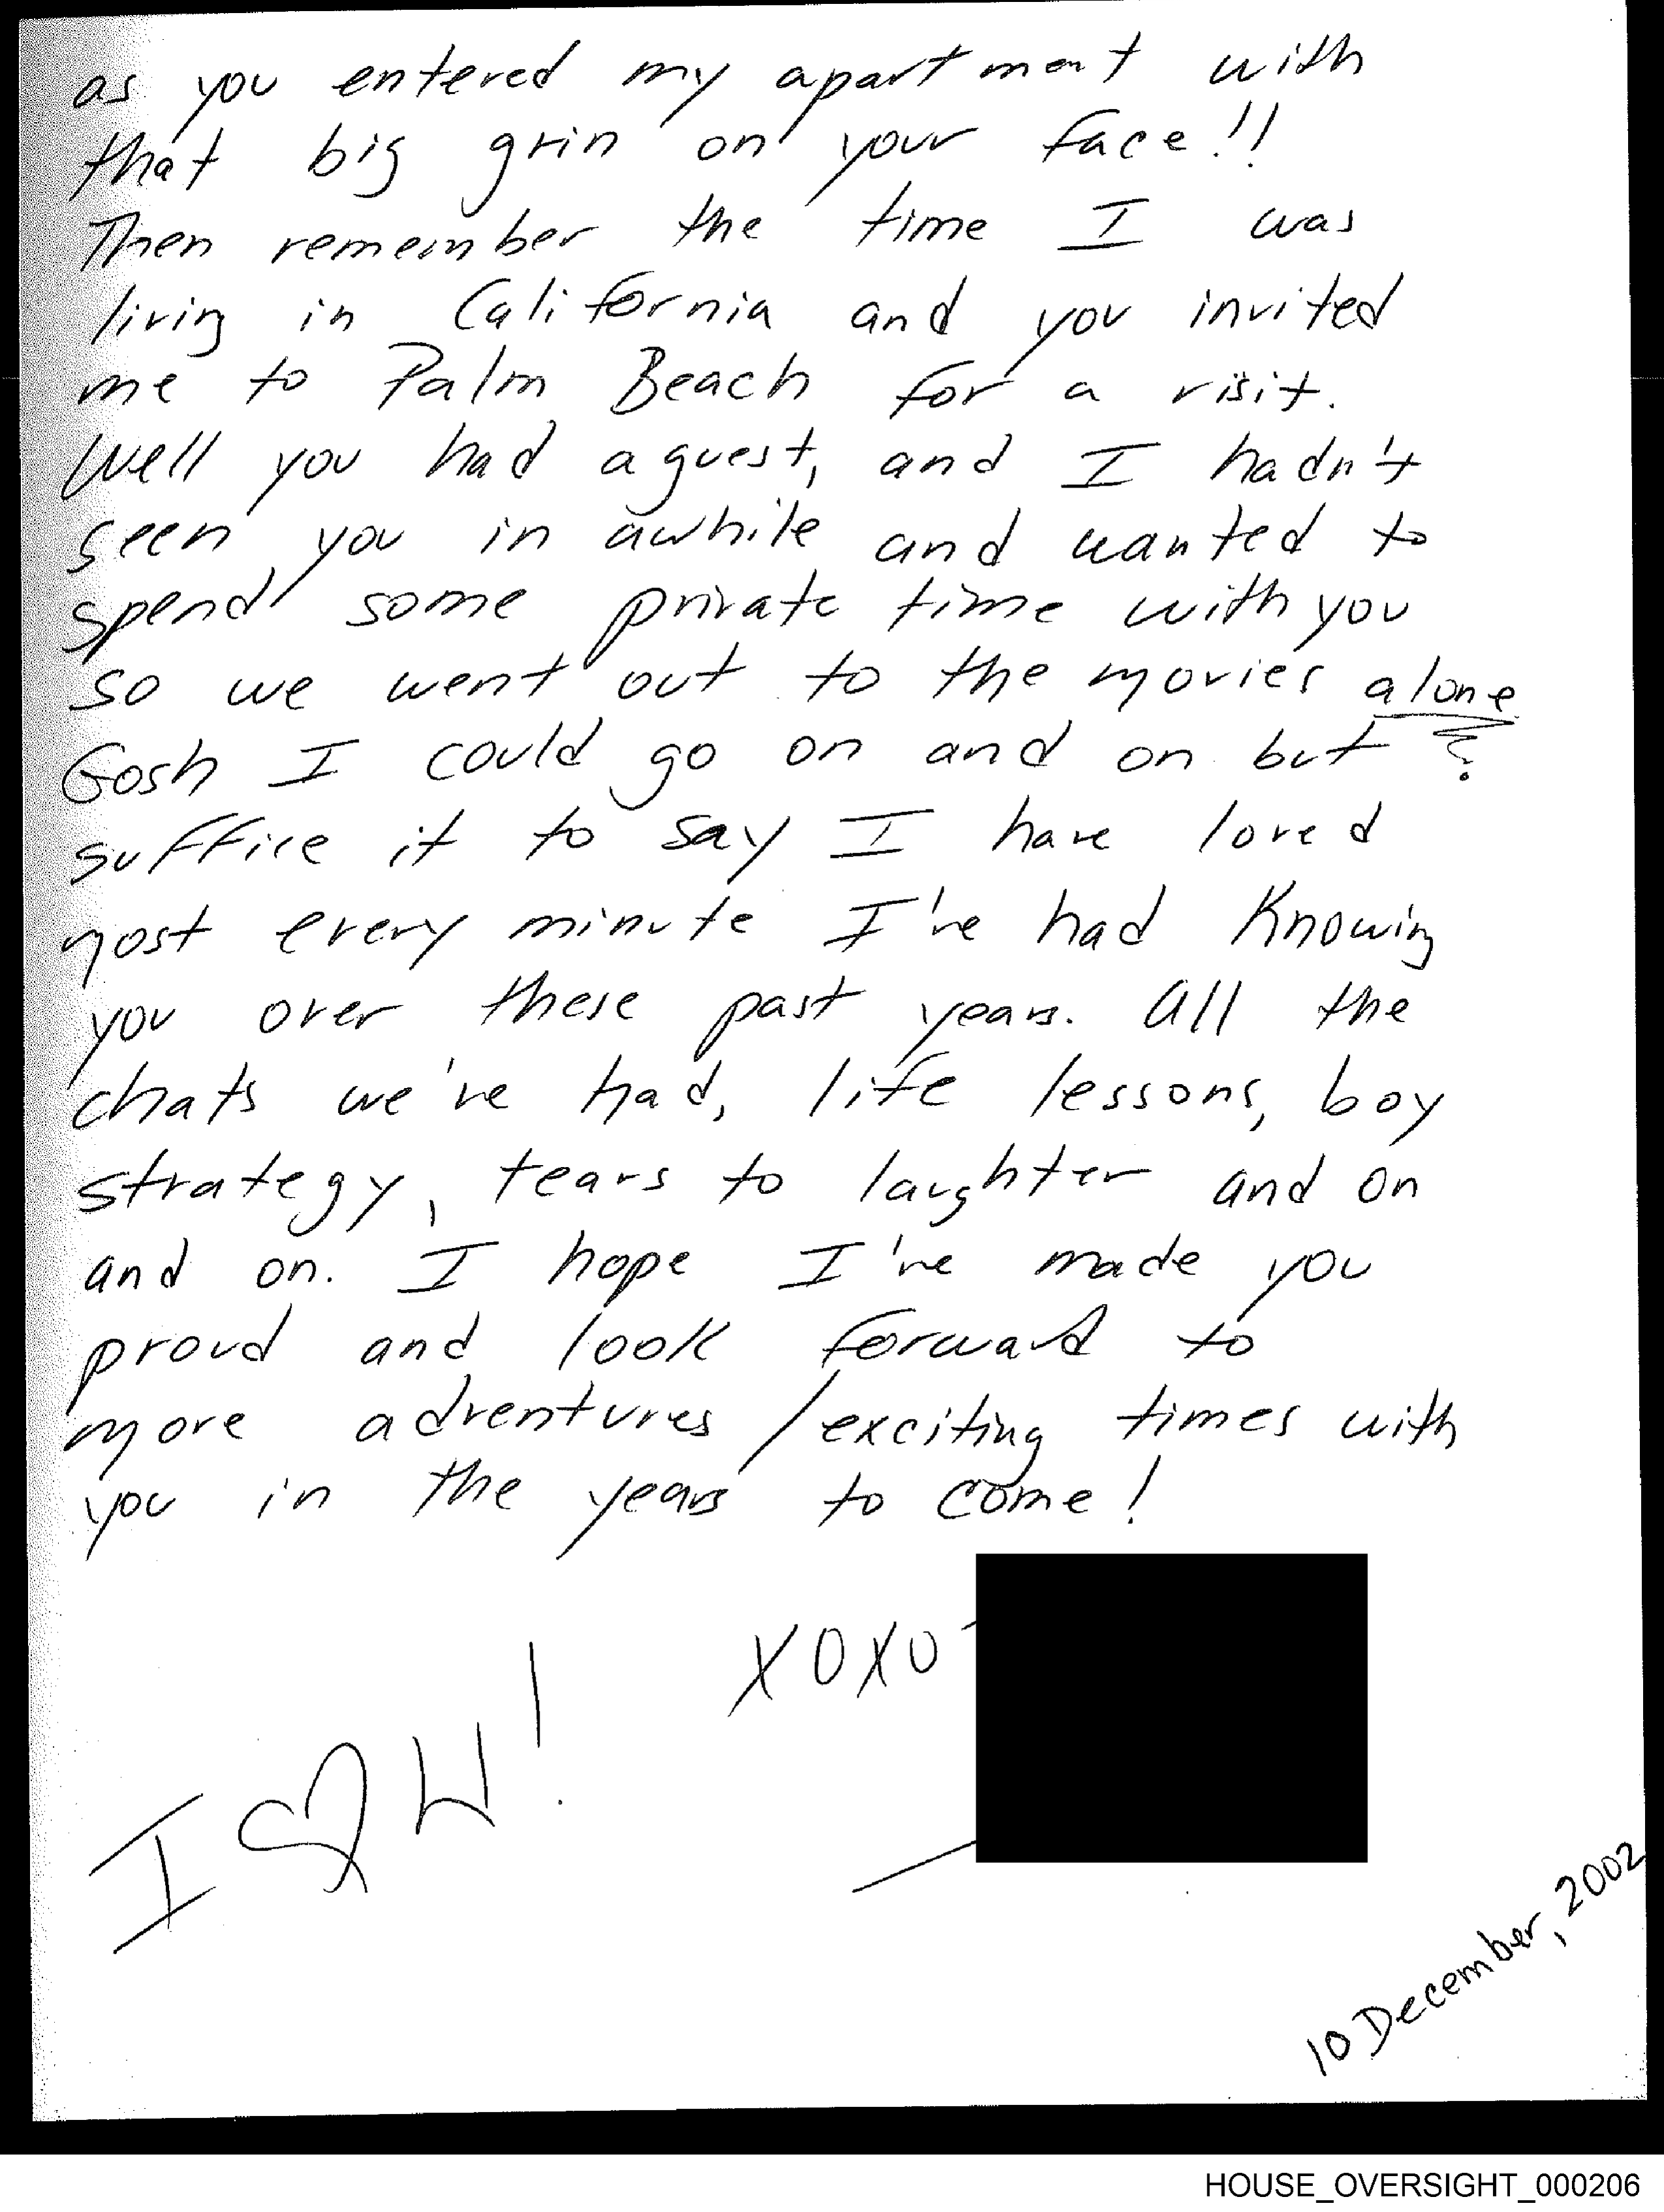 as you entered my apartment with
that big grin on your face!!
Then remember the time I was
living in California and you invited
me to Palm Beach for a visit.
Well you had a guest, and I hadn't
seen you in awhile and wanted to
spend some private time with you
so we went out to the movies alone
Gosh I could go on and on but
suffice it to say I have loved
most every minute I've had knowing
you over these past years. All the
chats we've had, life lessons, boy
strategy, tears to laughter and on
and on. I hope I've made you
proud and look forward to
more adventures/exciting times with
you in the years to come!
XOXO
I ♡ U!
10 December, 2002
HOUSE_OVERSIGHT_000206